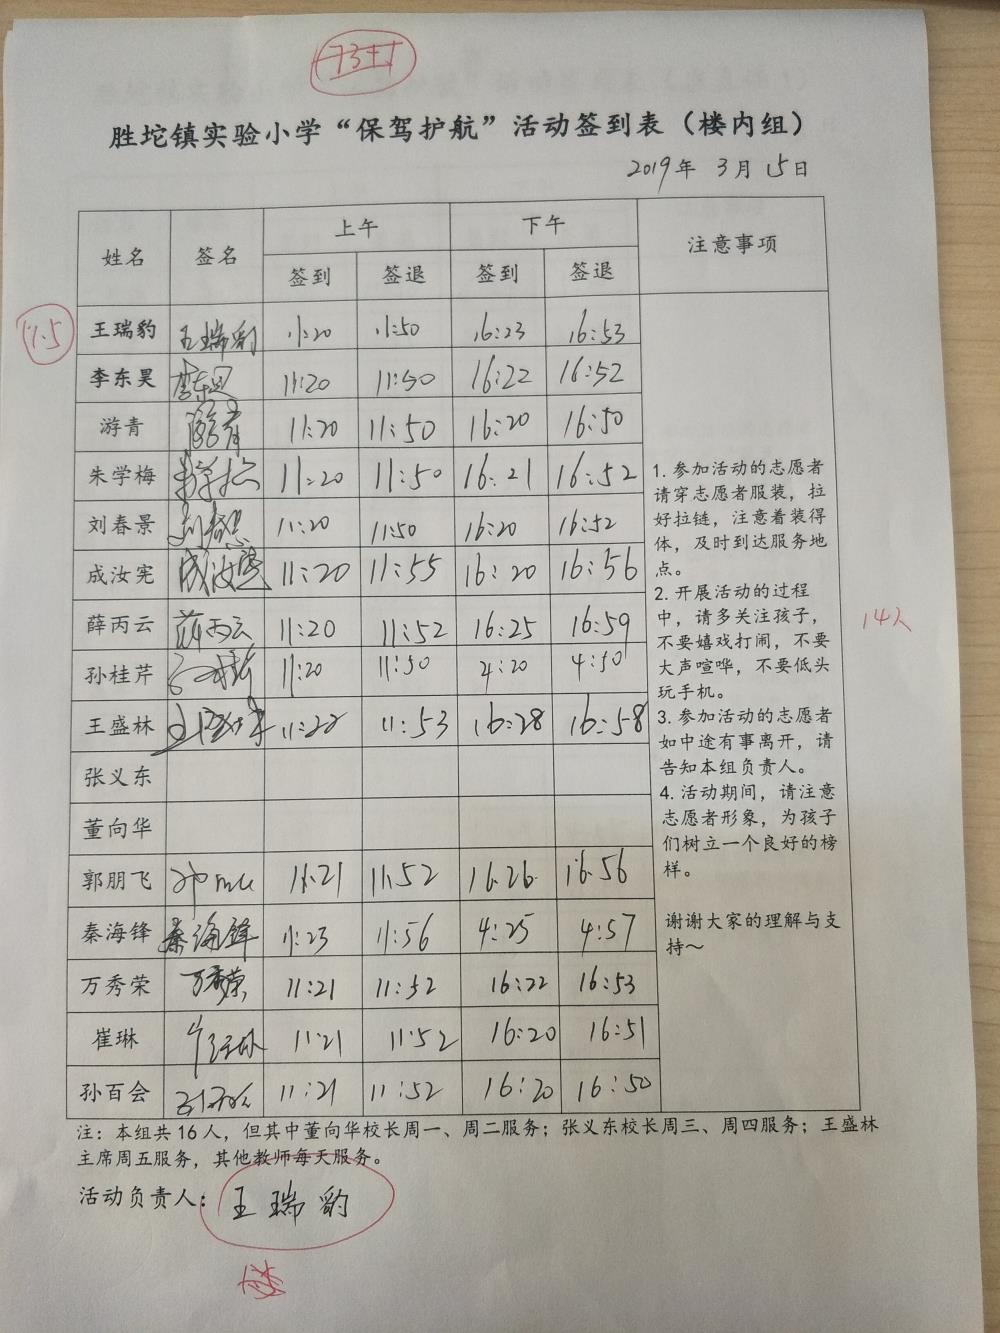 胜坨镇实验小学“保驾护航”活动签到表（楼内组）
2019年 3月 15日
姓名 签名 上午 下午 注意事项
签到 签退 签到 签退
王瑞豹 王瑞豹 11:20 11:50 16:23 16:53
李东昊 李东昊 11:20 11:50 16:22 16:52
游青 游青 11:20 11:50 16:20 16:50
朱学梅 朱学梅 11:20 11:50 16:21 16:52
刘春景 刘春景 11:20 11:50 16:20 16:52
成汝宪 成汝宪 11:20 11:55 16:20 16:56
薛丙云 薛丙云 11:20 11:52 16:25 16:59
孙桂芹 孙桂芹 11:20 11:50 4:20 4:50
王盛林 王盛林 11:22 11:53 16:28 16:58
张义东
董向华
郭朋飞 11:21 11:52 16:26 16:56
秦海锋 秦海锋 11:23 11:56 4:25 4:57
万秀荣 万秀荣 11:21 11:52 16:22 16:53
崔琳 崔琳 11:21 11:52 16:20 16:51
孙百会 孙百会 11:21 11:52 16:20 16:50
1. 参加活动的志愿者
请穿志愿者服装，拉
好拉链，注意着装得
体，及时到达服务地
点。
2. 开展活动的过程
中，请多关注孩子，
不要嬉戏打闹，不要
大声喧哗，不要低头
玩手机。
3. 参加活动的志愿者
如中途有事离开，请
告知本组负责人。
4. 活动期间，请注意
志愿者形象，为孩子
们树立一个良好的榜
样。
谢谢大家的理解与支
持～
14人
注：本组共16人，但其中董向华校长周一、周二服务；张义东校长周三、周四服务；王盛林
主席周五服务，其他教师每天服务。
活动负责人：王瑞豹